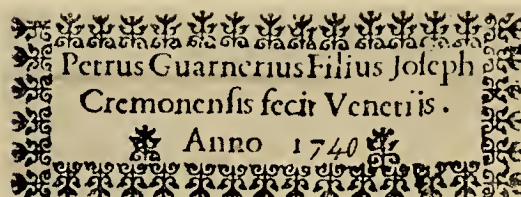 Petrus Guarnerius Filius Joseph
Cremonensis fecit Venetiis.
Anno 1740